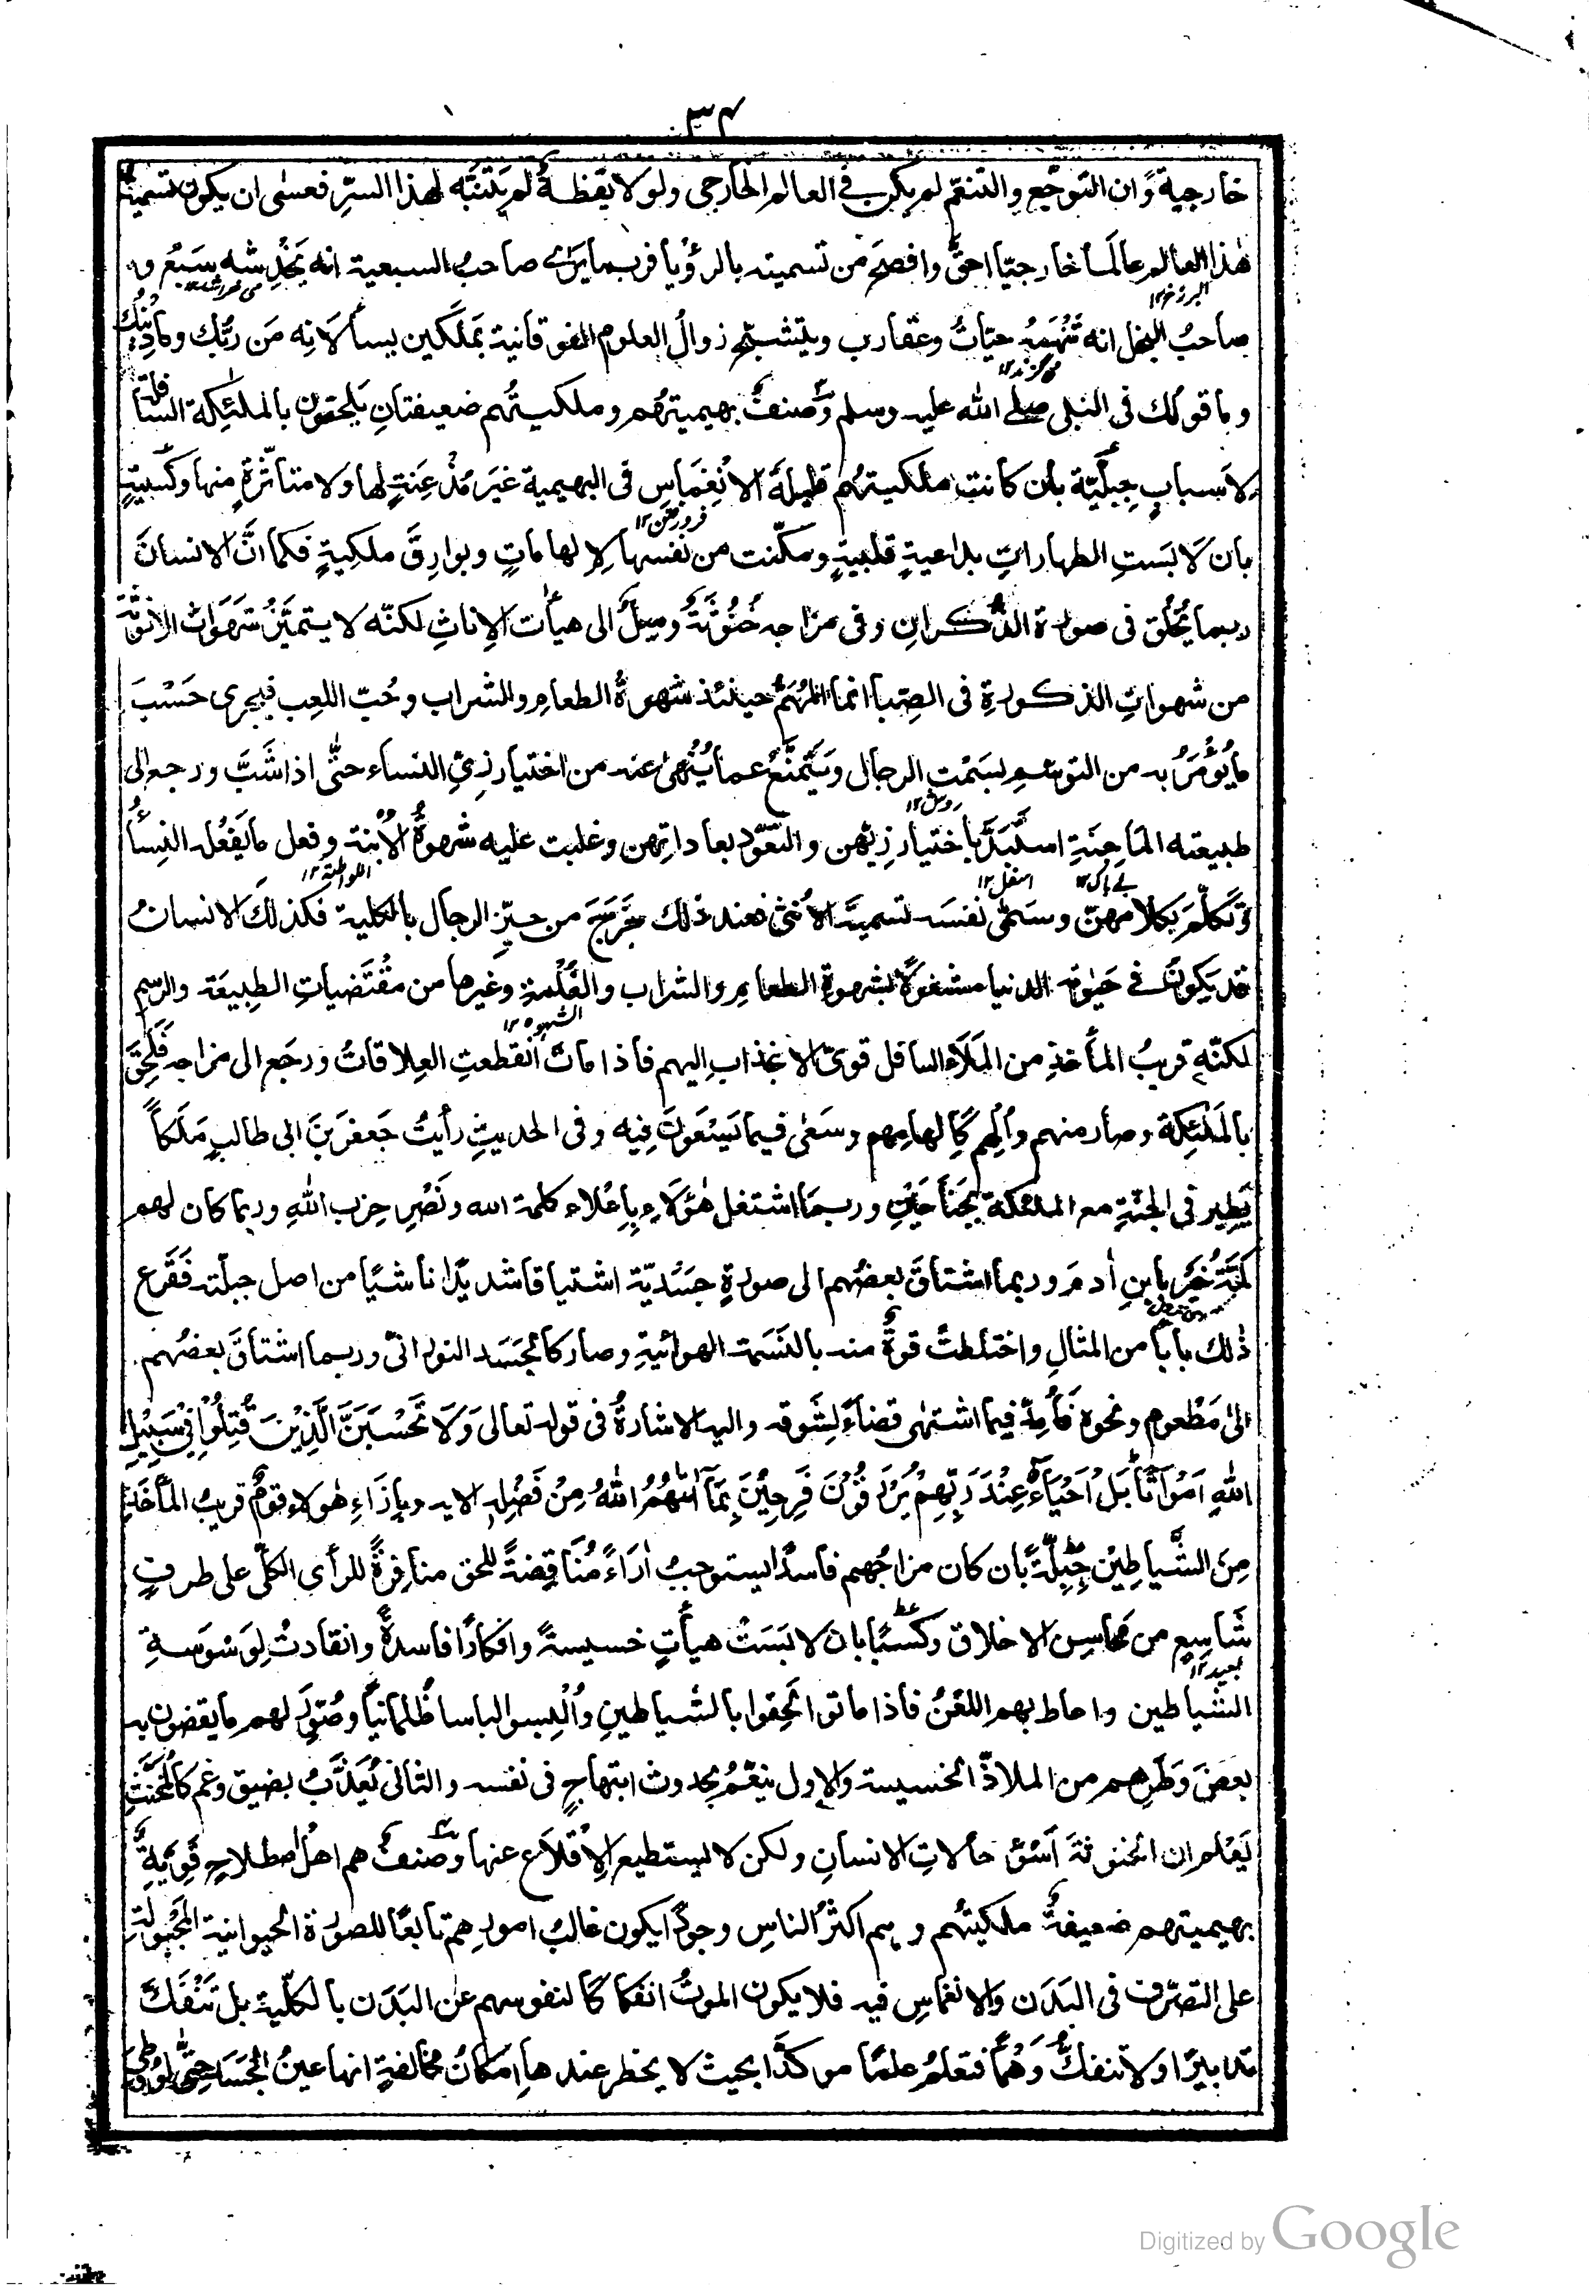 ٣٤
خارجية وان التوجع والتنعم لم يكن فى العالم الخارجى ولولا يقظة لم يتنبه لهذا السر فعسى ان يكون تسمية
هذا العالم عالما خارجيا احق وافصح من تسميته بالرؤيا فربما يرى صاحب السبعية انه يخدشه سبع و
البرزخ ١٢ می خراشد ١٢
صاحب البخل انه تنهسه حيات وعقارب ويتشبح زوال العلوم الفوقانية بملكين يسألانه من ربك وما دينك
می گزند ١٢
وما قولك فى النبى صلى الله عليه وسلم وصنف بهيميتهم وملكيتهم ضعيفتان يلحقون بالملئكة السافلة
لاسباب جبلية بان كانت ملكيتهم قليلة الانغماس فى البهيمية غير مذعنة لها ولا متأثرة منها وكسبية
فرو رفتن ١٢
بان لابست الطهارات بداعية قلبية ومكنت من نفسها لالهامات وبوارق ملكية فكما ان الانسان
ربما يخلق فى صورة الذكران وفى مزاجه خنوثة وميل الى هيأت الاناث لكنه لا يستميز شهوات الانوثة
من شهوات الذكورة فى الصبا انما المهم حينئذ شهوة الطعام والشراب وحب اللعب فيجرى حسب
ما يؤمر به من التوسم بسمت الرجال ويتمنع عما ينهى عنه من اختيار زى النساء حتى اذا شب ورجع الى
روش ١٢
طبيعته الماجنة استبد باختيار زيهن والتعود بعاداتهن وغلبت عليه شهوة الابنة وفعل ما يفعله النساء
بے باک ١٢ استقل ١٢ اللواطة ١٢
وتكلم بكلامهن وسمى نفسه تسمية الانثى فعند ذلك خرج من حيز الرجال بالكلية فكذلك الانسان
قد يكون فى حيوة الدنيا مشغوفا بشهوة الطعام والشراب والغلمة وغيرها من مقتضيات الطبيعة والرسم
الشهوة ١٢
لكنه قريب المأخذ من الملأ السافل قوى الانجذاب اليهم فاذا مات انقطعت العلاقات ورجع الى مزاجه فلحق
بالملئكة وصار منهم وألهم كالهامهم وسعى فيما يسعون فيه وفى الحديث رأيت جعفر بن ابى طالب ملكا
يطير فى الجنة مع الملئكة بجناحين وربما اشتغل هؤلاء باعلاء كلمة الله ونصر حزب الله وربما كان لهم
لمة خير بابن ادم وربما اشتاق بعضهم الى صورة جسدية اشتياقا شديدا ناشيا من اصل جبلته فقرع
ذلك بابا من المثال واختلطت قوة منه بالنسمة الهوائية وصار كالجسد النورانى وربما اشتاق بعضهم
الى مطعوم ونحوه فامد فيما اشتهى قضاء لشوقه واليه الاشارة فى قوله تعالى ولا تحسبن الذين قتلوا فى سبيل
الله امواتا بل احياء عند ربهم يرزقون فرحين بما اتهم الله من فضله الاية وبازاء هولاء قوم قريب المأخذ
من الشياطين جبلة بان كان مزاجهم فاسدا يستوجب اراء مناقضة للحق منافرة للرأى الكلى على طرف
شاسع من محاسن الاخلاق وكسبا بان لابست هيأت خسيسة وافكارا فاسدة وانقادت لوسوسة
بعيد ١٢
الشياطين واحاط بهم اللعن فاذا ماتوا الحقوا بالشياطين وألبسوا لباسا ظلمانيا وصور لهم ما يقضون به
بعض وطرهم من الملاذ الخسيسة والاول ينعم بحدوث ابتهاج فى نفسه والثانى يعذب بضيق وغم كالمخنث
يعلم ان الخنوثة اسوء حالات الانسان ولكن لا يستطيع الاقلاع عنها وصنف هم اهل اصطلاح قوية
بهيميتهم ضعيفة ملكيتهم وهم اكثر الناس وجودا يكون غالب امورهم تابعا للصورة الحيوانية المجبولة
على التصرف فى البدن والانغماس فيه فلا يكون الموت انفكاكا لنفوسهم عن البدن بالكلية بل تنفك
تدابيرا ولا تنفك وهما فتعلم علما موكدا بحيث لا يخطر عندها امكان مخالفة انها عين الجسد حتى لو وطئ
Digitized by Google